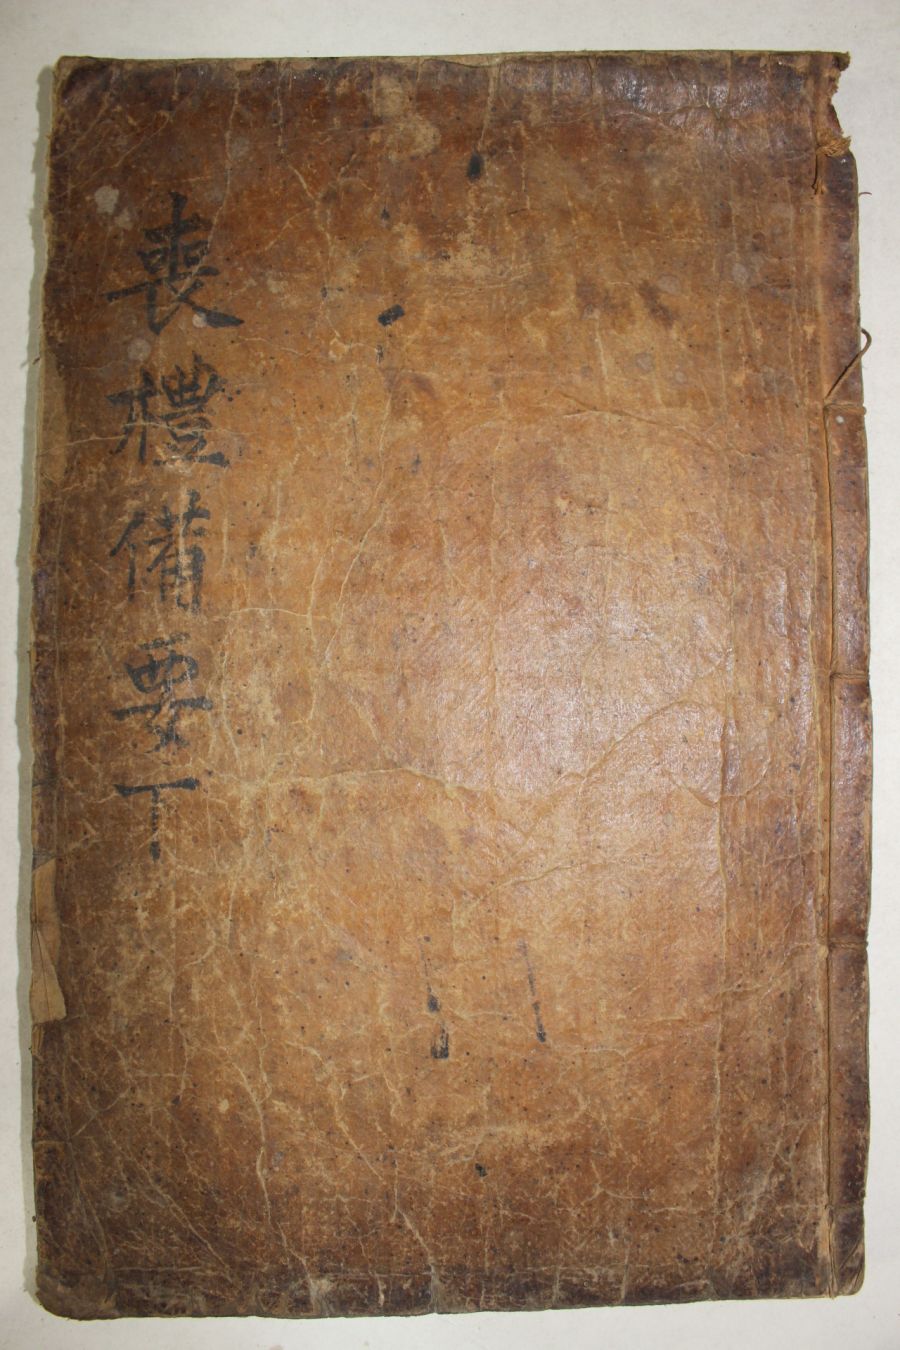 喪禮備要下